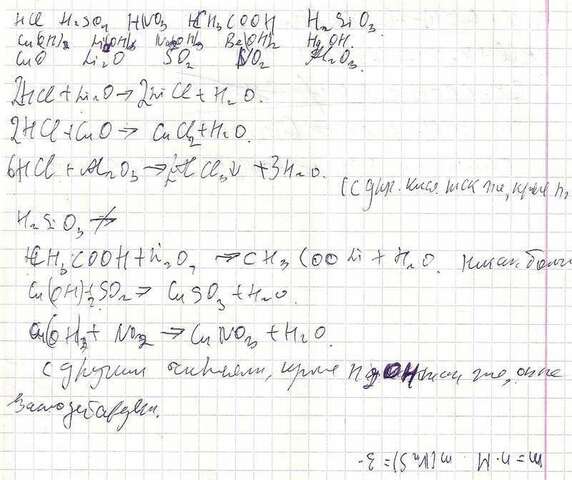 HCl H₂SO₄ HNO₃ CH₃COOH H₂SiO₃
Cu(OH)₂ Li(OH)₂ Na(OH)₂ Be(OH)₂ Hg OH.
CuO Li₂O SO₂ NO₂ Al₂O₃.
2HCl + Li₂O → 2LiCl + H₂O.
2HCl + CuO → CuCl₂ + H₂O.
6HCl + Al₂O₃ → 2AlCl₃↓ + 3H₂O.
(с друг. кисл. так же, кроме H₂
H₂SiO₃ ↛
CH₃COOH + Li₂O → CH₃COOLi + H₂O.
Cu(OH)₂ + SO₂ → CuSO₃ + H₂O.
Cu(OH)₂ + NO₂ → CuNO₃ + H₂O.
с другими кроме HgOH так же, он не
взаимодейств.
m=n·M. m(Na₂S)= 3-